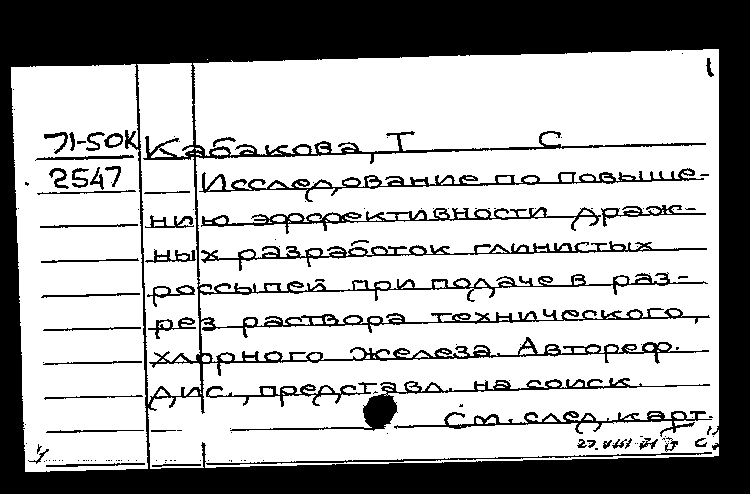 1
71-50К Кабакова, Т С
2547 Исследование по повыше-
нию эффективности драж-
ных разработок глинистых
россыпей при подаче в раз-
рез раствора технического,
хлорного железа. Автореф.
дис., представл. на соиск.
См. след. карт.
27.VIII 71